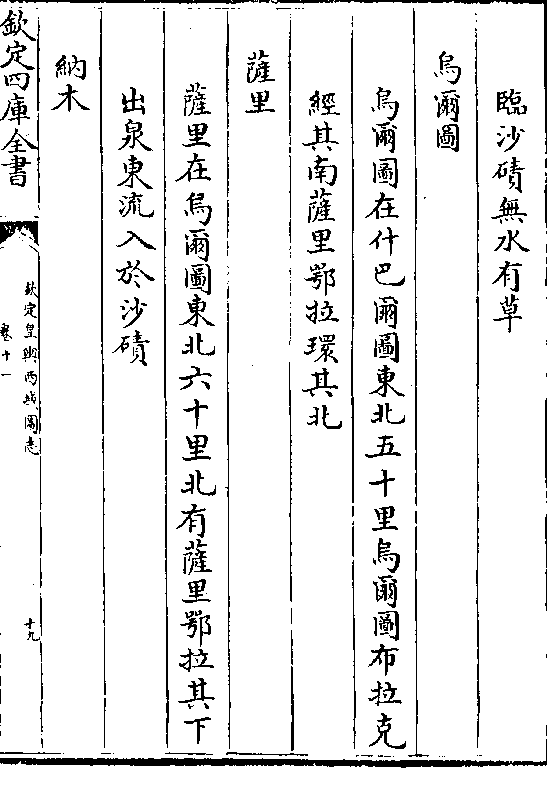 臨沙磧無水有草
烏爾圖
烏爾圖在什巴爾圖東北五十里烏爾圖布拉克
經其南薩里鄂拉環其北
薩里
薩里在烏爾圖東北六十里北有薩里鄂拉其下
出泉東流入於沙磧
納木
欽定四庫全書
欽定皇輿西域圖志
卷十一
十九